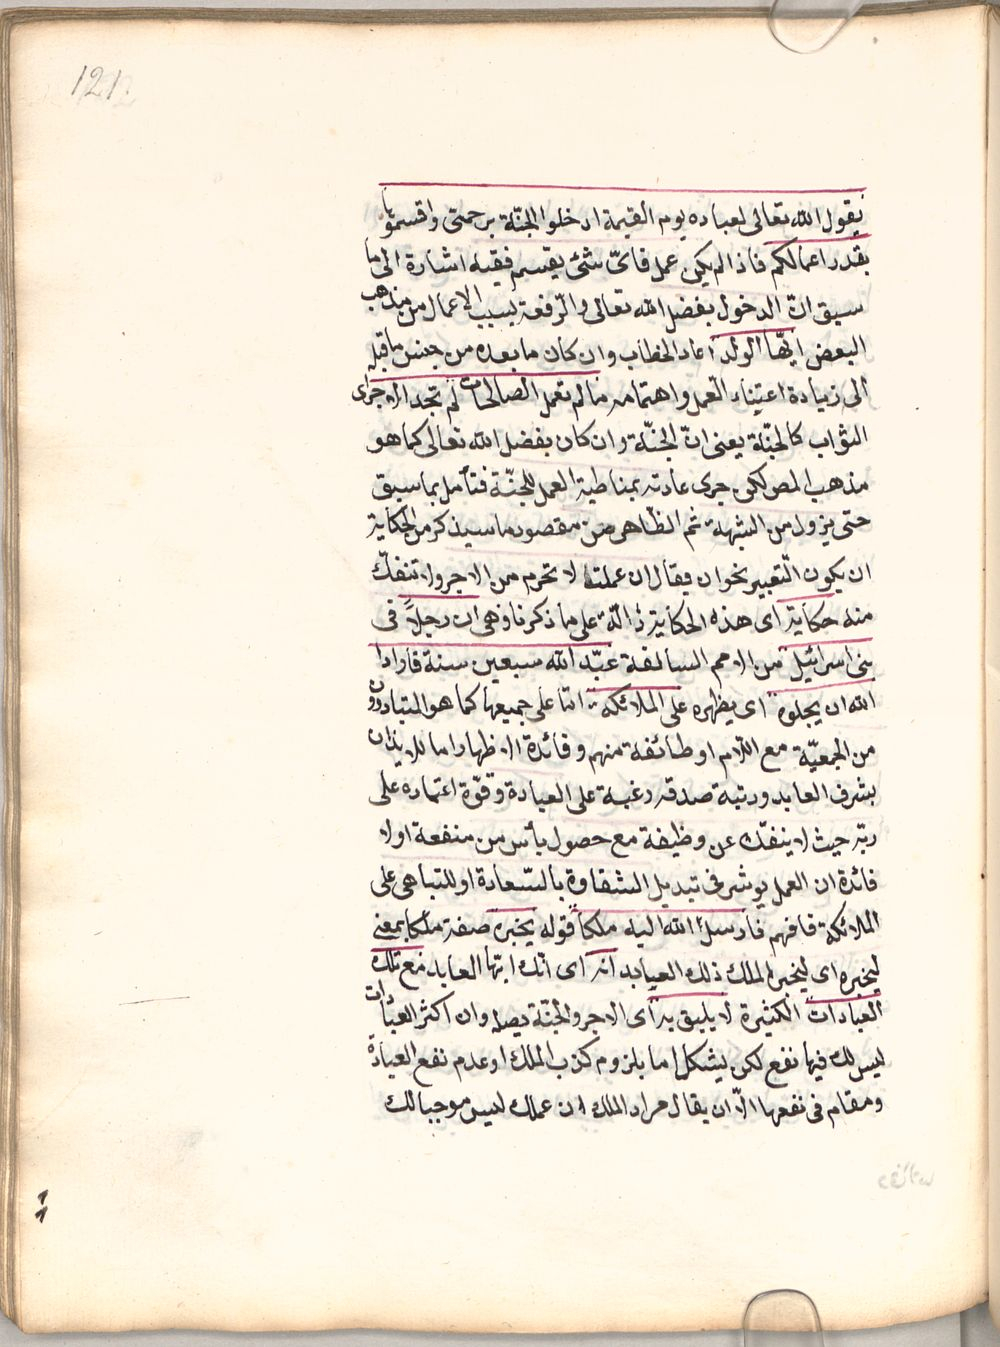 121
يقول الله تعالى لعباده يوم القيمة ادخلوا الجنّة برحمتى واقسموها
بقدر اعمالكم فاذا لم يكن عمل فاىّ شئ يقسم ففيه اشارة الى ما
سبق انّ الدخول بفضل الله تعالى والرّفعة بسبب الاعمال من مذهب
البعض ايّها الولد اعاد الخطاب وان كان ما بعده من جنس ما قبله
الى زيادة اعتناء العمل واهتمامه ما لم تعمل الصالحات لم تجد الاجر اى
الثواب كالجنّة يعنى انّ الجنّة وان كان بفضل الله تعالى كما هو
مذهب المص لكن جرى عادته بمناطية العمل للجنّة فتأمل بما سبق
حتى يزول من الشبهة ثم الظّاهر من مقصود ما سيذكر من الحكاية
ان يكون التّعبير نحو ان يقال ان عملت لا تحرم من الاجر ولا تنفكّ
منه حكاية اى هذه الحكاية دالّة على ما ذكرنا وهى ان رجلاً فى
بنى اسرائيل من الامم السالفة عبد الله سبعين سنة فاراد
الله ان يجلوه اى يظهره على الملائكة امّا على جميعها كما هو المتبادر
من الجمعيّة مع اللّام او طائفة منهم وفائدة الاظهار اما للايذان
بشرف العابد ورتبة صدقه رغبة على العبادة وقوّة اعتماده على
ربّه حيث لا ينفكّ عن وظيفة مع حصول يأس من منفعة او لا
فائدة ان العمل يوثر فى تبديل الشقاوة بالسّعادة او للتباهى على
الملائكة فافهم فارسل الله اليه ملكاً قوله يخبره صفة ملكا بمعنى
ليخبره اى ليخبر الملك ذلك العابد انه اى انّك ايّها العابد مع تلك
العبادات الكثيرة لا يليق به اى الاجر والجنّة يصله وان اكثر العبادات
ليس لك فيها نفع لكن يشكل اما بلزوم كذب الملك او عدم نفع العبادة
ومقام فى نفعها الّا ان يقال مراد الملك ان عملك ليس موجبا لك